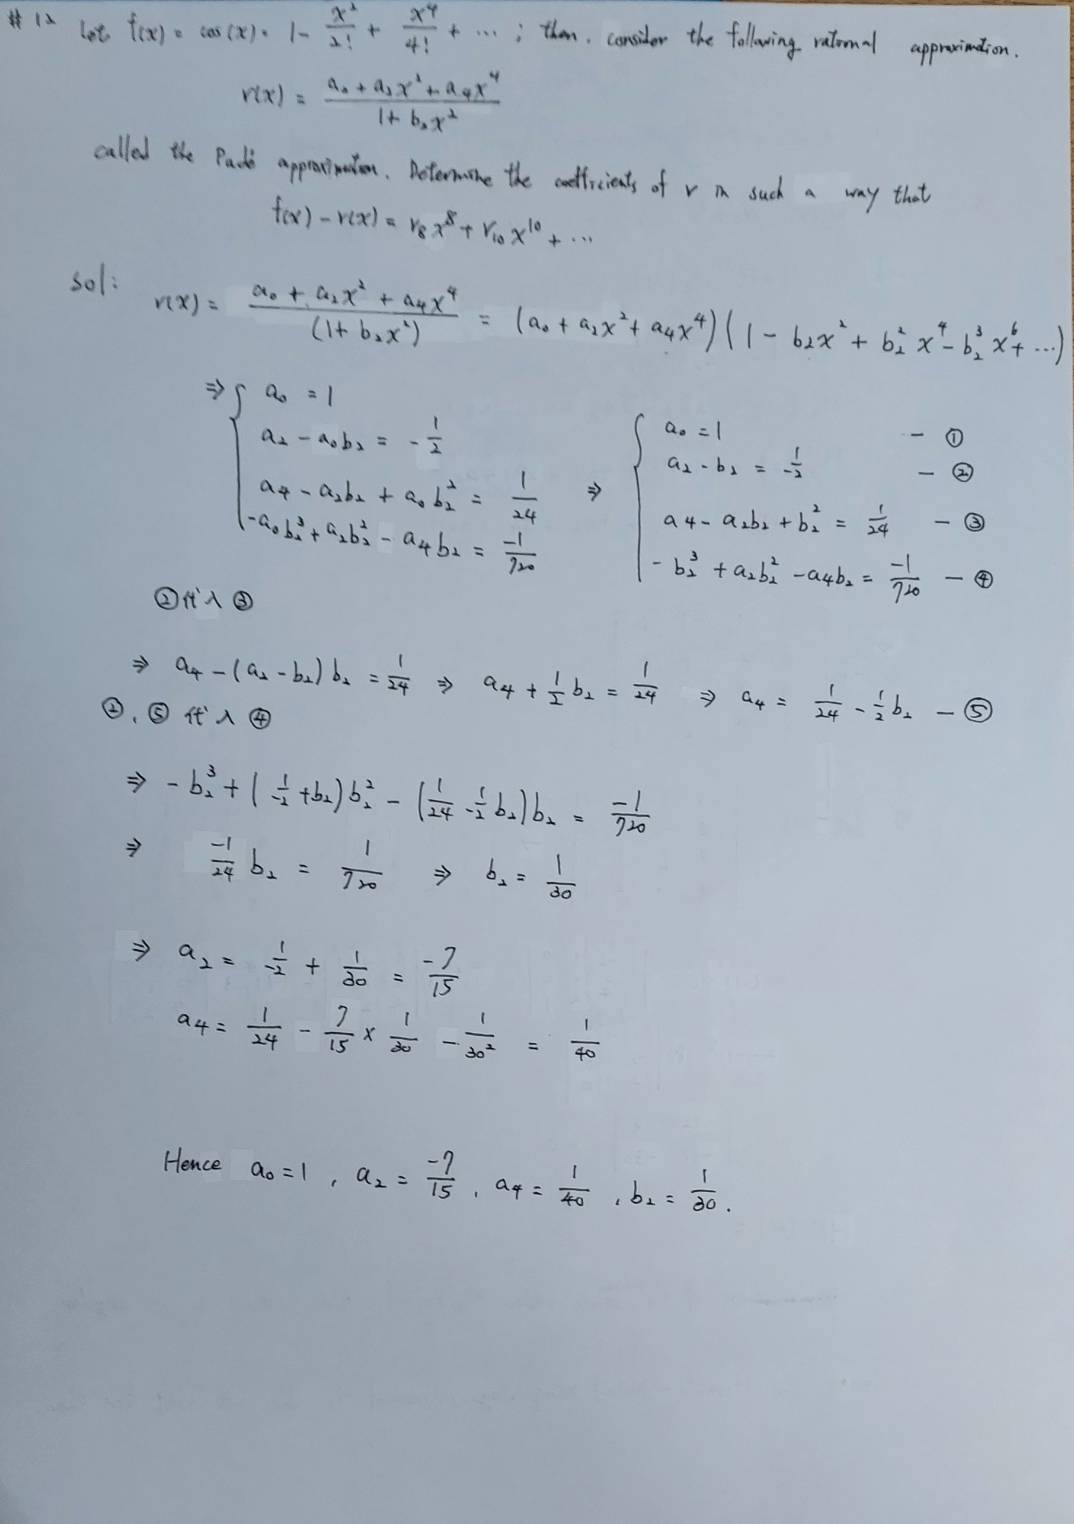 #12 Let f(x) = cos(x) = 1 - x²/2! + x⁴/4! + ... ; then. consider the following rational approximation.
r(x) = (a₀ + a₂x² + a₄x⁴)/(1 + b₂x²)
called the Padé approximation. Determine the coefficients of r in such a way that
f(x) - r(x) = r₈x⁸ + r₁₀x¹⁰ + ...
sol: r(x) = (a₀ + a₂x² + a₄x⁴)/(1 + b₂x²) = (a₀ + a₂x² + a₄x⁴)(1 - b₂x² + b₂²x⁴ - b₂³x⁶ + ...)
⇒ { a₀ = 1
a₂ - a₀b₂ = -1/2
a₄ - a₂b₂ + a₀b₂² = 1/24
-a₀b₂³ + a₂b₂² - a₄b₂ = -1/720
⇒ { a₀ = 1 - ①
a₂ - b₂ = 1/-2 - ②
a₄ - a₂b₂ + b₂² = 1/24 - ③
-b₂³ + a₂b₂² - a₄b₂ = -1/720 - ④
②代入③
⇒ a₄ - (a₂ - b₂)b₂ = 1/24 ⇒ a₄ + 1/2 b₂ = 1/24 ⇒ a₄ = 1/24 - 1/2 b₂ - ⑤
②、⑤代入④
⇒ -b₂³ + (1/-2 + b₂)b₂² - (1/24 - 1/2 b₂)b₂ = -1/720
⇒ -1/24 b₂ = 1/720 ⇒ b₂ = 1/30
⇒ a₂ = 1/-2 + 1/30 = -7/15
a₄ = 1/24 - 7/15 × 1/30 - 1/30² = 1/40
Hence a₀ = 1 , a₂ = -7/15 , a₄ = 1/40 , b₂ = 1/30 .